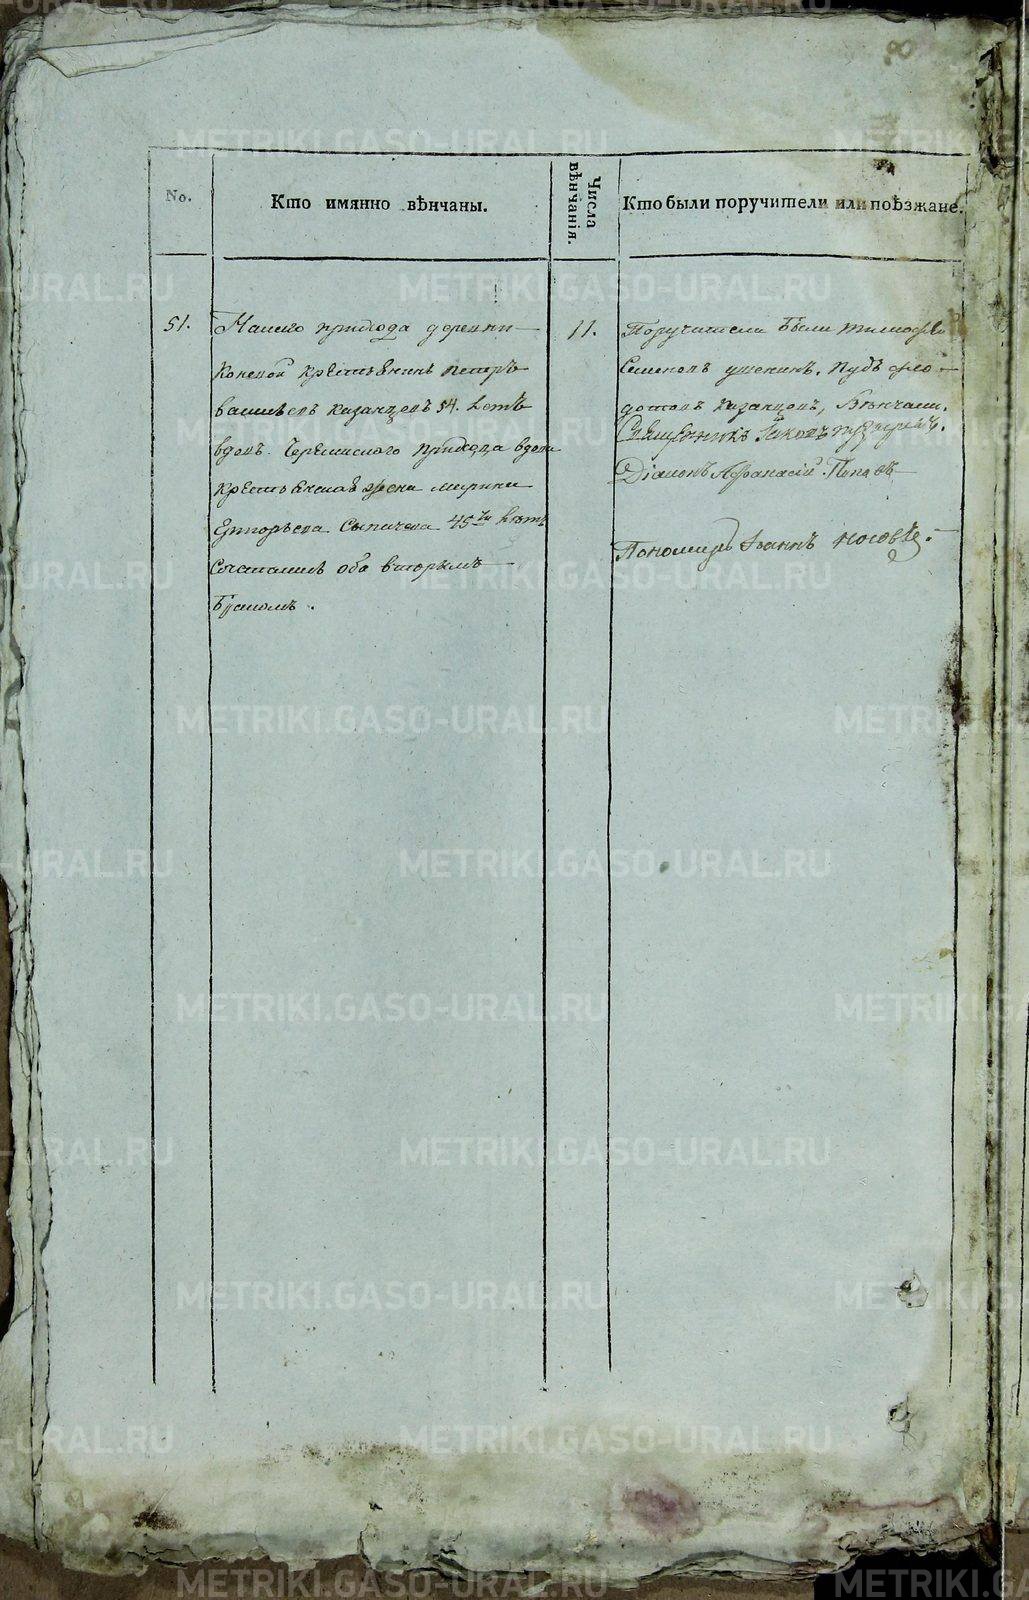 No.
Кто имянно вѣнчаны.
Числа
вѣнчанія.
Кто были поручители или поѣзжане.
51.
Нашего прихода деревни
Коневой крестьянинъ петръ
васильевъ казанцовъ 54. летъ
вдовъ. Черемисского прихода вдова
крестьянская жена
Сыпачева 45ти летъ
Сочетались оба вторымъ
Бракомъ.
11.
Поручители Были тимофей
Семеновъ
казанцовъ, Вѣнчали.
Священникъ Іаковъ
Діаконъ Афанасій Поповъ
Пономарь Іоаннъ носовъ
METRIKI.GASO-URAL.RU